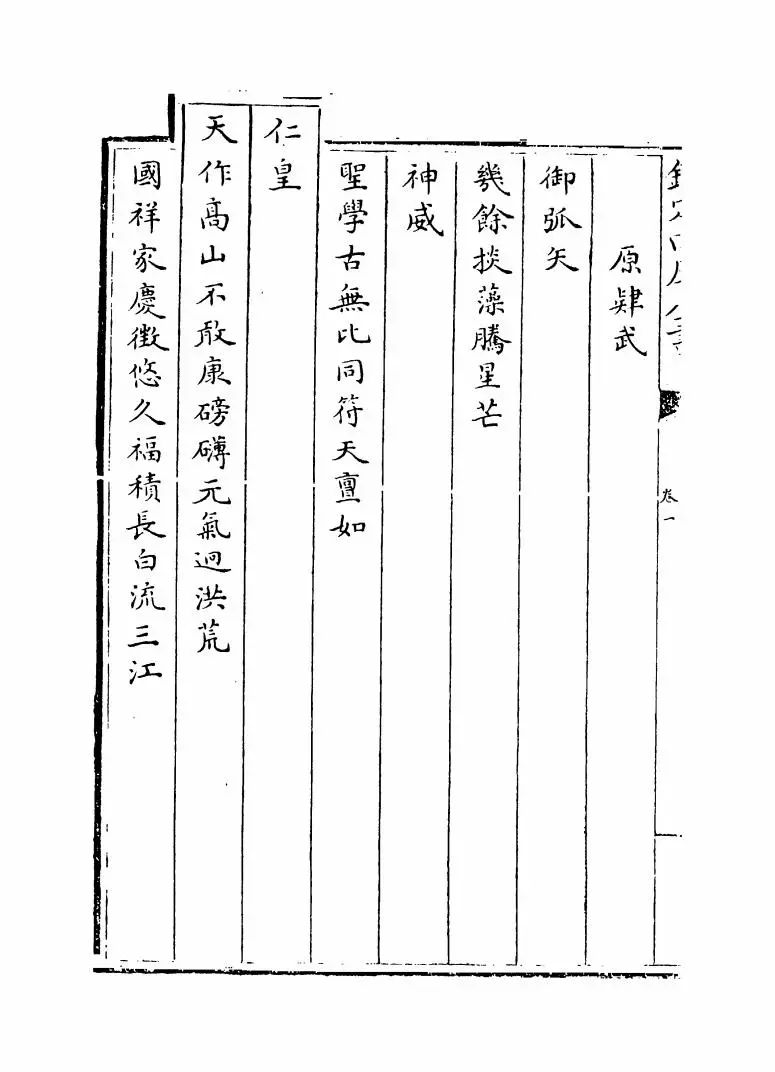 卷一
原肄武
御弧矢
幾餘掞藻騰星芒
神威
聖學古無比同符天亶如
仁皇
天作高山不敢康磅礴元氣迴洪荒
國祥家慶徵悠久福積長白流三江